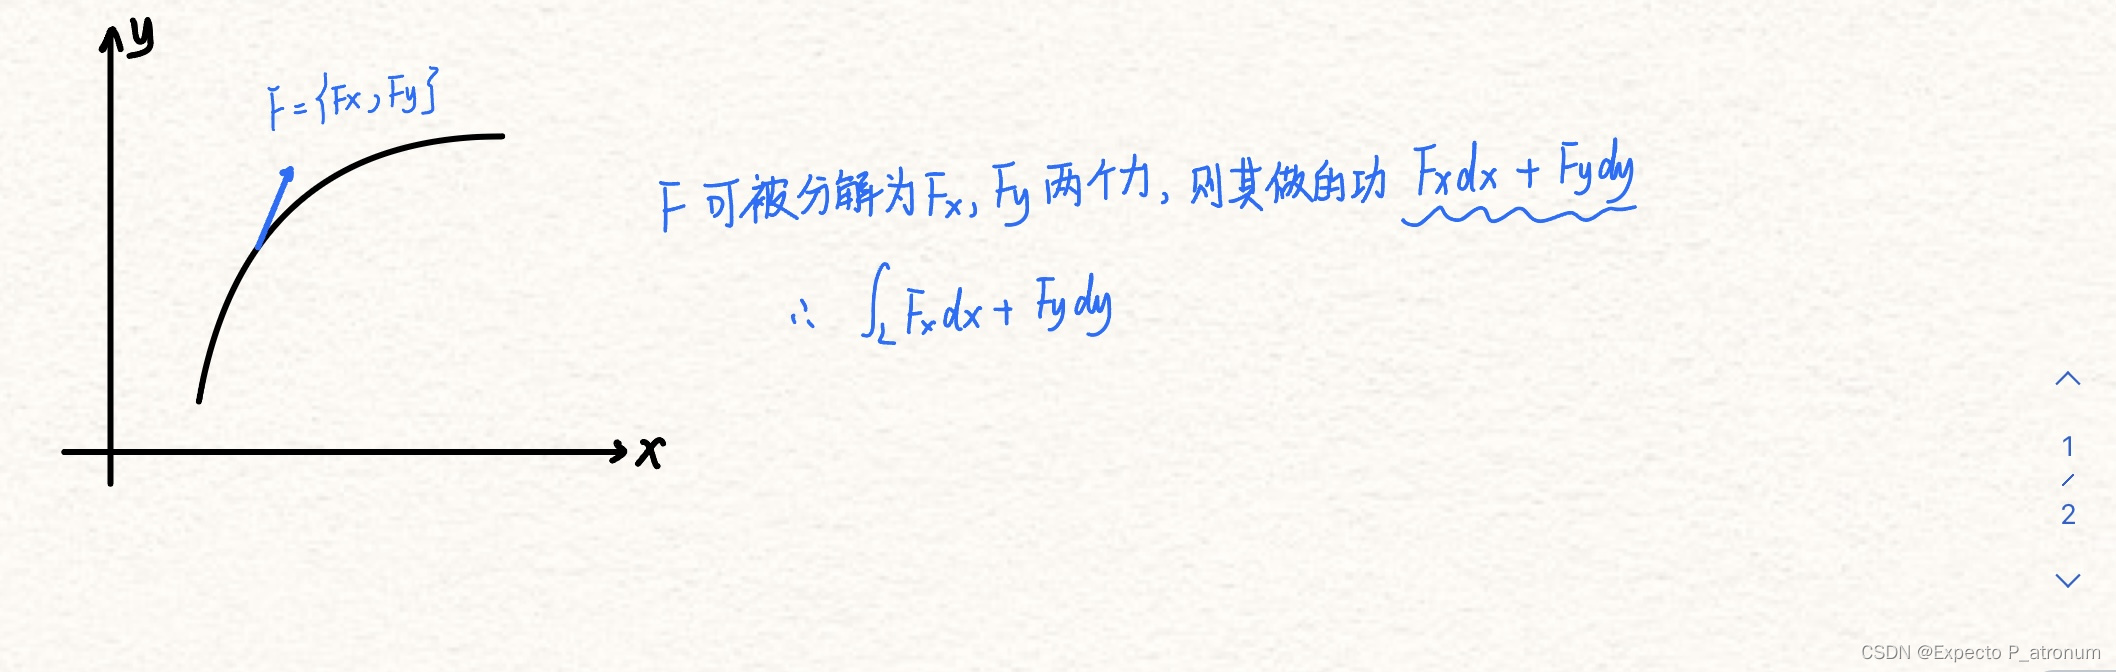 y
F={Fx,Fy}
F可被分解为Fx,Fy两个力,则其做的功 Fxdx+Fydy
∴ ∫L Fxdx+Fydy
x
1
/
2
CSDN @Expecto P_atronum